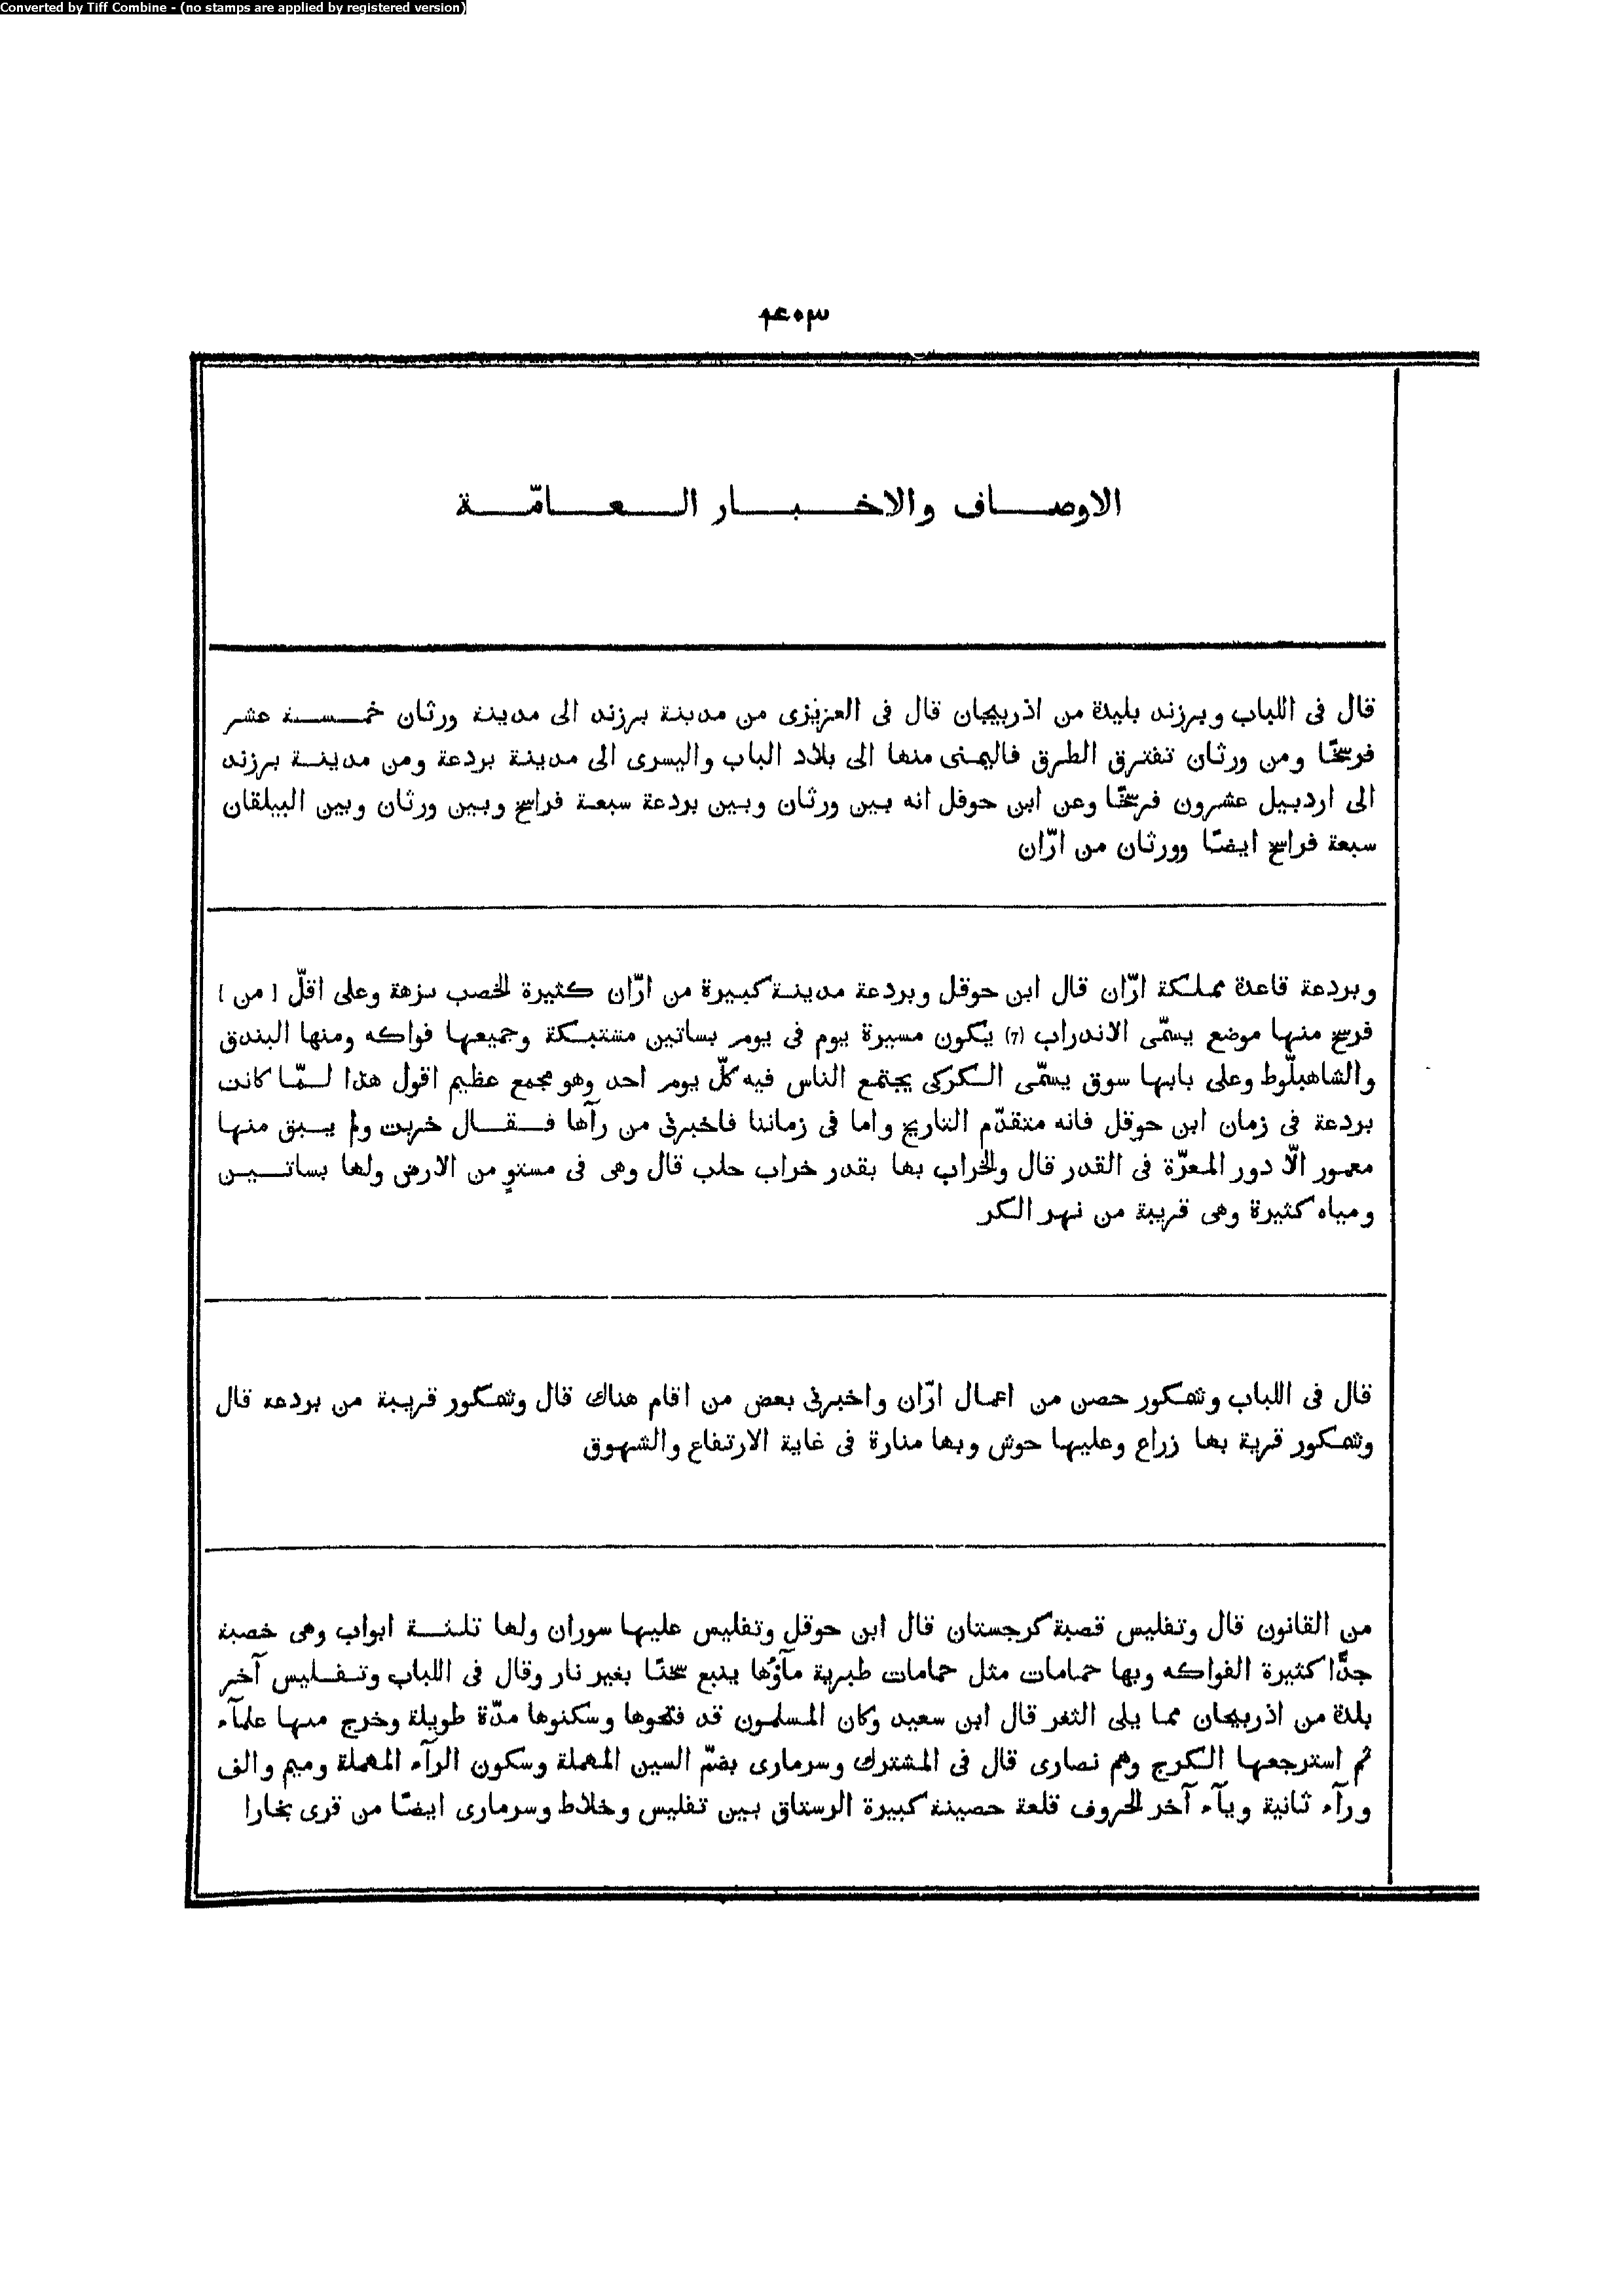 Converted by Tiff Combine - (no stamps are applied by registered version)
۴۰۳
الاوصاف والاخبار العامّة
قال فى اللباب وبرزند بليدة من اذربيجان قال فى العزيزى من مدينة برزند الى مدينة ورثان خمسة عشر
فرسخًا ومن ورثان تفترق الطرق فاليمنى منها الى بلاد الباب واليسرى الى مدينة بردعة ومن مدينة برزند
الى اردبيل عشرون فرسخًا وعن ابن حوقل انه بين ورثان وبين بردعة سبعة فراسخ وبين ورثان وبين البيلقان
سبعة فراسخ ايضًا وورثان من ارّان
وبردعة قاعدة مملكة ارّان قال ابن حوقل وبردعة مدينة كبيرة من ارّان كثيرة الخصب نزهة وعلى اقلّ [من]
فرسخ منها موضع يسمّى الاندراب (7) يكون مسيرة يوم فى يوم بساتين مشتبكة وجميعها فواكه ومنها البندق
والشاهبلّوط وعلى بابها سوق يسمّى الكركى يجتمع الناس فيه كلّ يوم احد وهو مجمع عظيم اقول هذا لمّا كانت
بردعة فى زمان ابن حوقل فانه متقدّم التاريخ واما فى زماننا فاخبرنى من رآها فقال خربت ولم يبق منها
معمور الّا دور المعرّة فى القدر قال والخراب بها بقدر خراب حلب قال وهى فى مستوٍ من الارض ولها بساتين
ومياه كثيرة وهى قريبة من نهر الكر
قال فى اللباب وشمكور حصن من اعمال ارّان واخبرنى بعض من اقام هناك قال وشمكور قريبة من بردعة قال
وشمكور قرية بها زراع وعليها حوش وبها منارة فى غاية الارتفاع والشهوق
من القانون قال وتفليس قصبة كرجستان قال ابن حوقل وتفليس عليها سوران ولها ثلثة ابواب وهى خصبة
جدًّا كثيرة الفواكه وبها حمامات مثل حمامات طبرية مآؤها ينبع سخنًا بغير نار وقال فى اللباب وتفليس آخر
بلدة من اذربيجان مما يلى الثغر قال ابن سعيد وكان المسلمون قد فتحوها وسكنوها مدّة طويلة وخرج منها علمآء
ثم استرجعها الكرج وهم نصارى قال فى المشترك وسرمارى بضمّ السين المهملة وسكون الرآء المهملة وميم والف
ورآء ثانية ويآء آخر الحروف قلعة حصينة كبيرة الرستاق بين تفليس وخلاط وسرمارى ايضًا من قرى بخارا